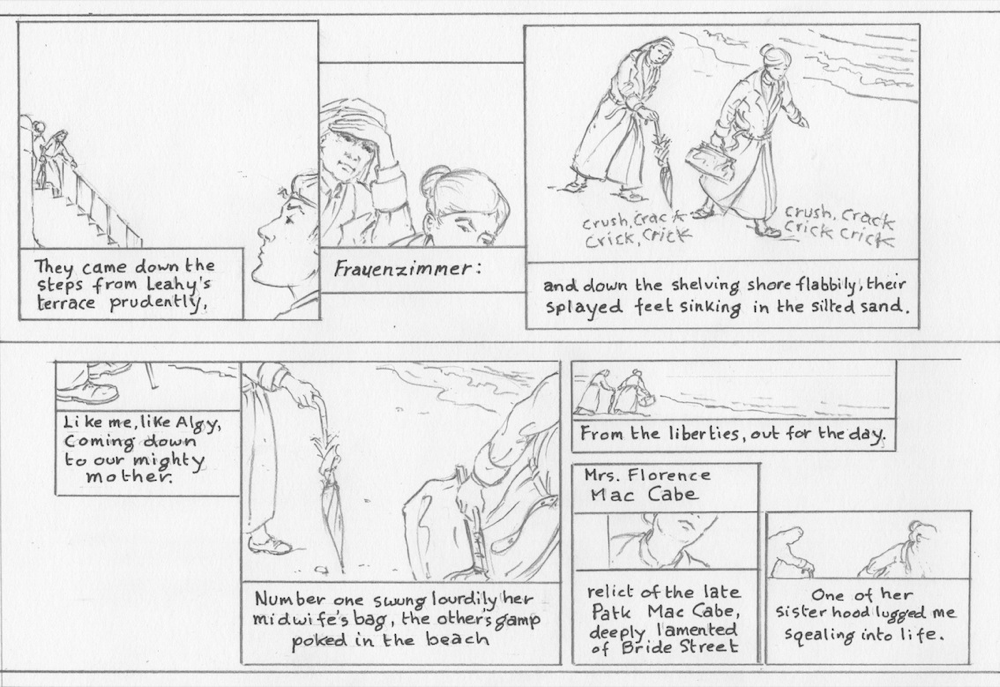 They came down the
steps from Leahy's
terrace prudently,
Frauenzimmer:
crush, crack
crick, crick
crush, crack
crick crick
and down the shelving shore flabbily, their
splayed feet sinking in the silted sand.
Like me, like Algy,
Coming down
to our mighty
mother.
Number one swung lourdily her
midwife's bag, the other's gamp
poked in the beach
From the liberties, out for the day.
Mrs. Florence
Mac Cabe
relict of the late
Patk Mac Cabe,
deeply lamented
of Bride Street
One of her
sister hood lugged me
sqealing into life.